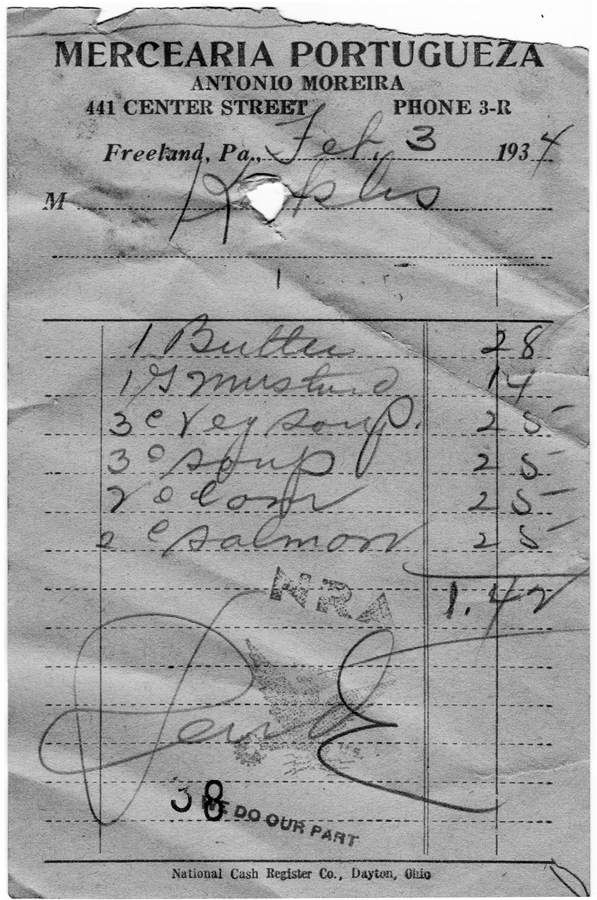 MERCEARIA PORTUGUEZA
ANTONIO MOREIRA
441 CENTER STREET PHONE 3-R
Freeland, Pa., Feb. 3 1934
M
1 Butter 28
1 G mustard 14
3 c Veg soup. 25
3 c soup 25
2 c Corn 25
2 c Salmon 25
1.42
NRA
U.S.
38
WE DO OUR PART
National Cash Register Co., Dayton, Ohio